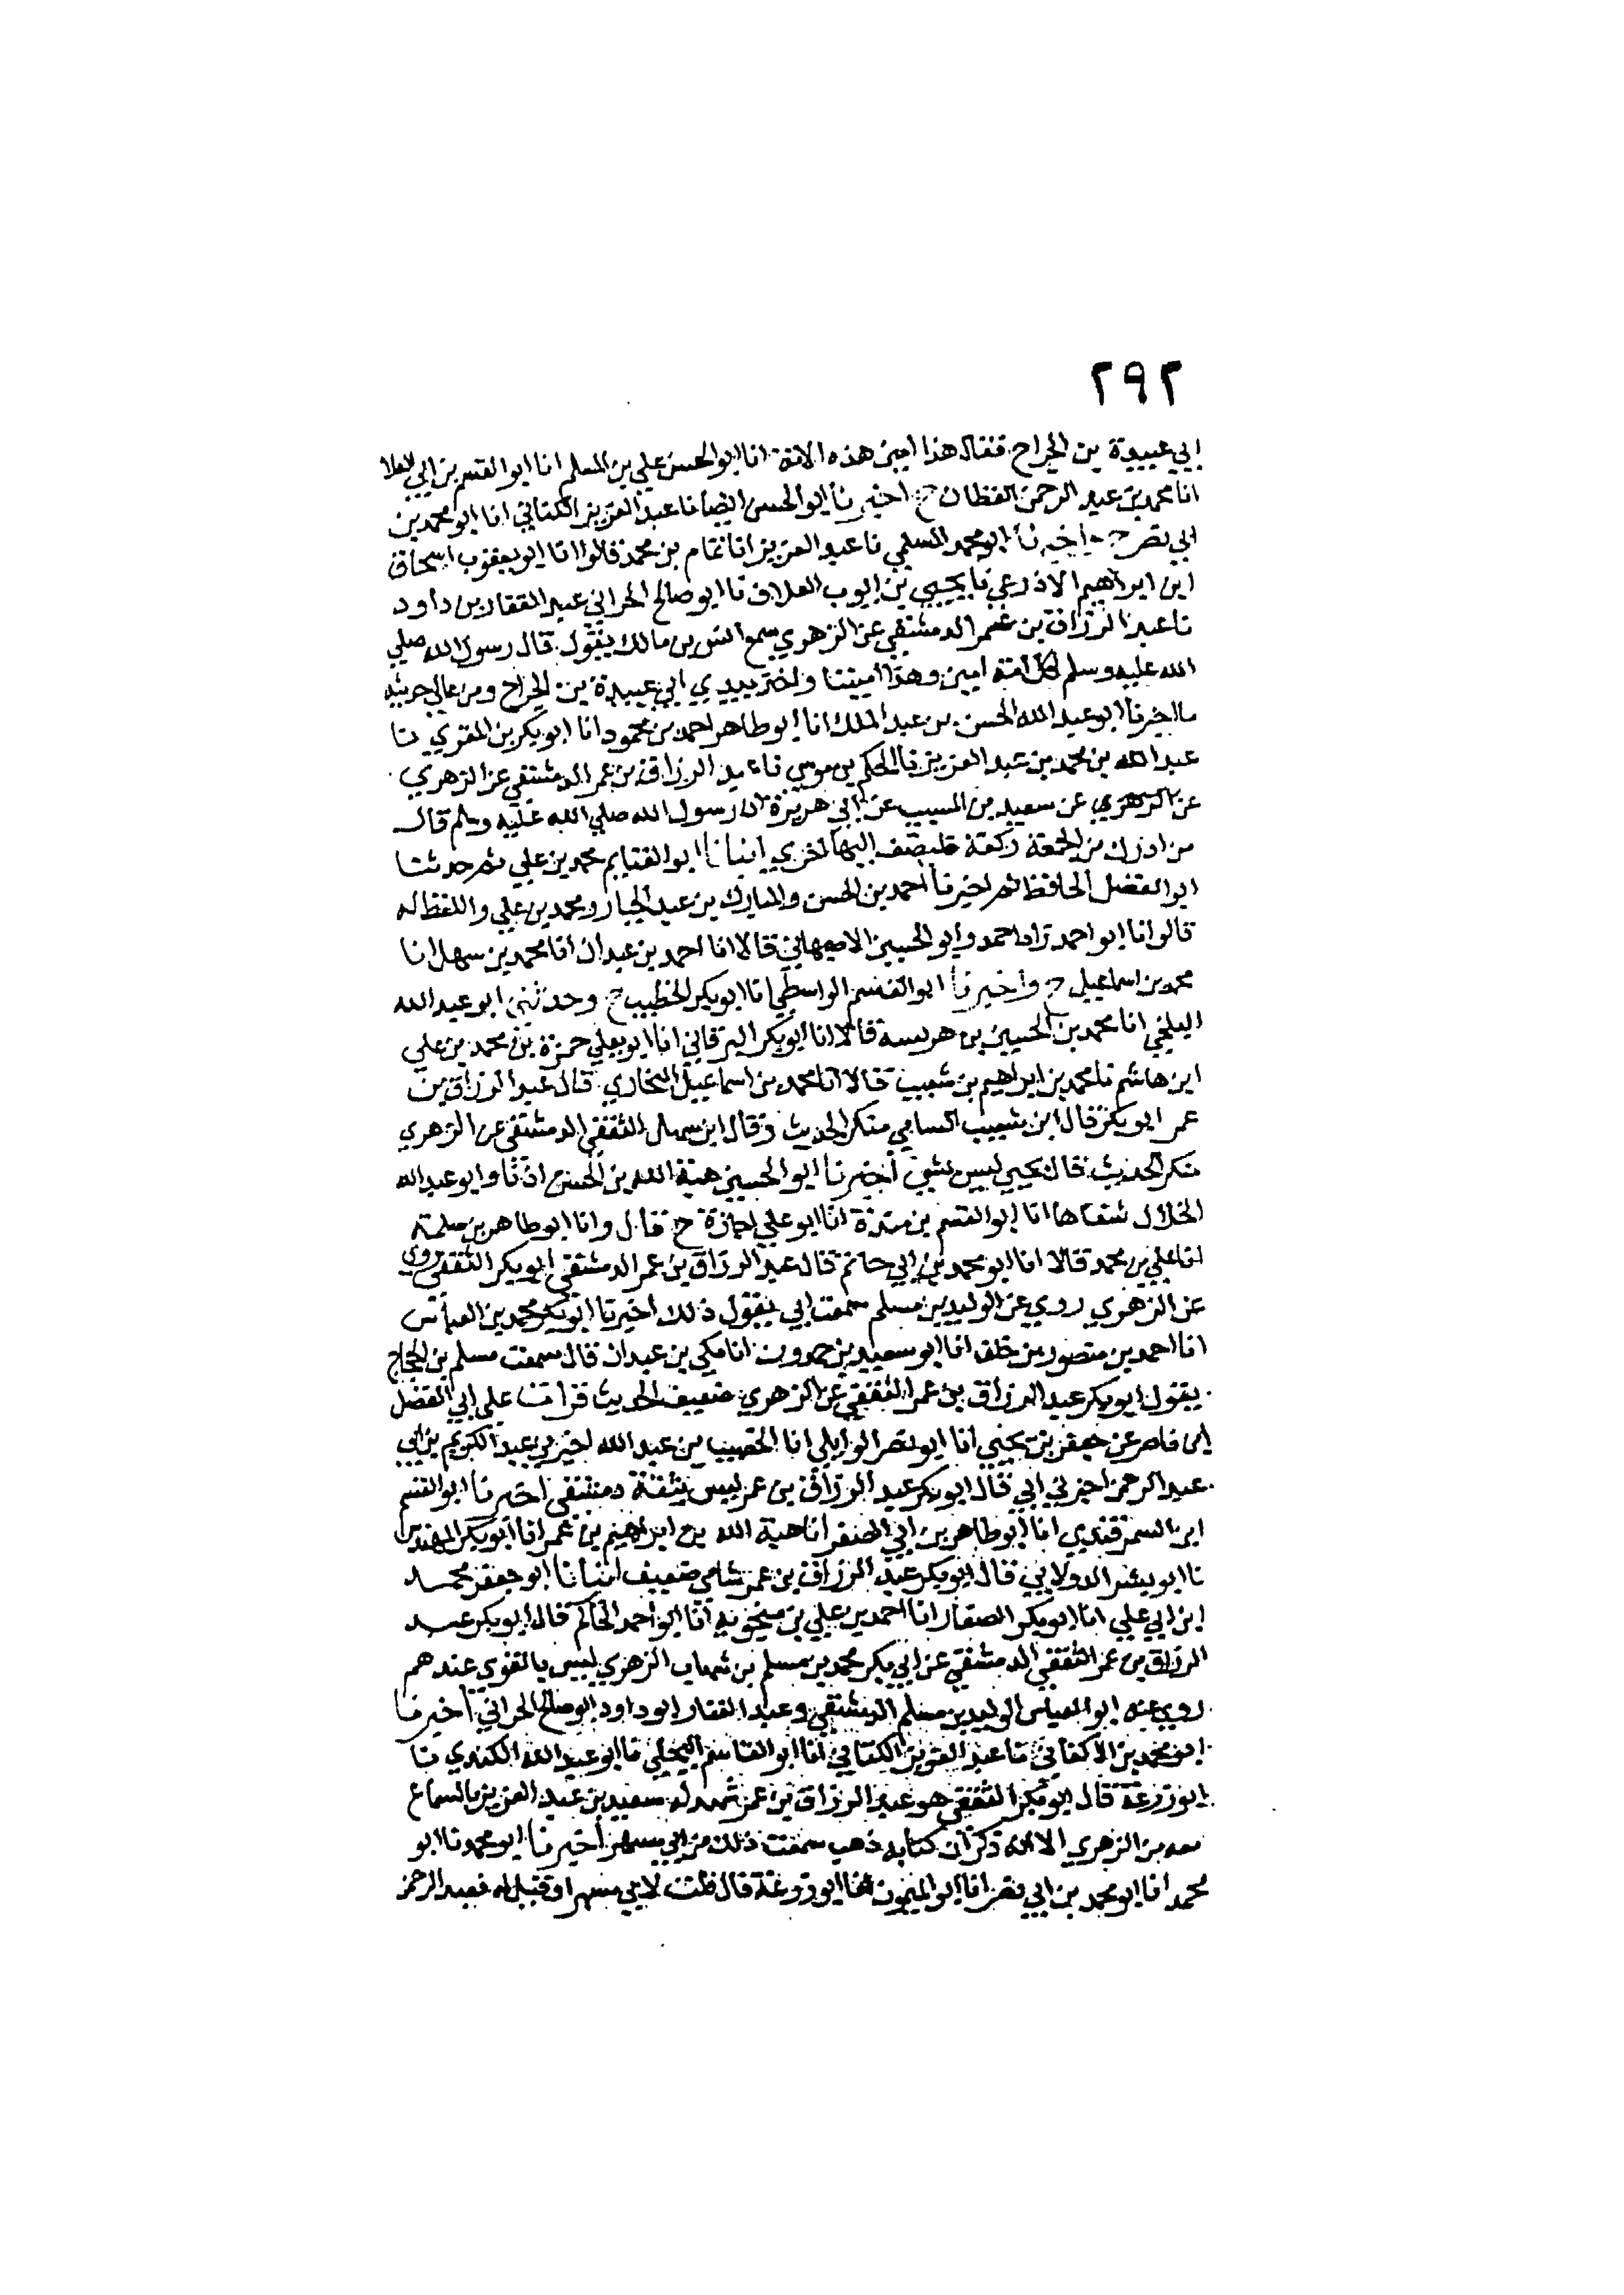 ٢٩٢
ابي عبيدة بن الجراح فقال هذا امين هذه الامة انا ابو الحسن علي بن المسلم انا ابو القسم بن ابي العلا
انا محمد بن عبد الرحمن القطان ح اخبرنا ابو الحسن ايضا نا عبد العزيز الكتاني انا ابو محمد بن
ابي نصر ح واخبرنا ابو محمد السلمي نا عبد العزيز انا تمام بن محمد قالوا انا ابو يعقوب اسحاق
ابن ابراهيم الاذرعي نا يحيي بن ايوب العلاف نا ابو صالح الحراني عبد الغفار بن داود
نا عبد الرزاق بن عمر الدمشقي عن الزهري سمع انس بن مالك يقول قال رسول الله صلي
الله عليه وسلم لكل امة امين وهذا اميننا واخذ بيدي ابي عبيدة بن الجراح ومن عالي حديثه
ما اخبرنا ابو عبد الله الحسن بن عبد الملك انا ابو طاهر احمد بن محمود انا ابو بكر بن المقري نا
عبد الله بن محمد بن عبد العزيز نا الحكم بن موسي نا عبد الرزاق بن عمر الدمشقي عن الزهري
عن الزهري عن سعيد بن المسيب عن ابي هريرة ان رسول الله صلي الله عليه وسلم قال
من ادرك من الجمعة ركعة فليضف اليها اخري انبانا ابو الغنايم محمد بن علي ثم حدثنا
ابو الفضل الحافظ ثم اخبرنا احمد بن الحسن والمبارك بن عبد الجبار ومحمد بن علي واللفظ له
قالوا انا ابو احمد زاد احمد وابو الحسين الاصبهاني قالا انا احمد بن عبدان انا محمد بن سهل انا
محمد بن اسماعيل ح واخبرنا ابو القسم الواسطي انا ابو بكر الخطيب ح وحدثني ابو عبد الله
البلخي انا محمد بن الحسين بن هريسة قالا انا ابو بكر البرقاني انا ابو يعلي حمزة بن محمد بن علي
ابن هاشم نا محمد بن ابراهيم بن شعيب قالا انا محمد بن اسماعيل البخاري قال عبد الرزاق بن
عمر ابو بكر قال ابن شعيب السامي منكر الحديث وقال ابن سهل الثقفي الدمشقي عن الزهري
منكر الحديث قال يحيي ليس بشي اخبرنا ابو الحسين هبة الله بن الحسن اذنا وابو عبد الله
الخلال شفاها انا ابو القسم بن مندة انا ابو علي اجازة ح قال وانا ابو طاهر بن سلمة
انا علي بن محمد قالا انا ابو محمد بن ابي حاتم قال عبد الرزاق بن عمر الدمشقي ابو بكر الثقفي روي
عن الزهري روي عن الوليد بن مسلم سمعت ابي يقول ذلك اخبرنا ابو بكر محمد بن العباس
انا احمد بن منصور بن خلف انا ابو سعيد بن حمدون انا مكي بن عبدان قال سمعت مسلم بن الحجاج
يقول ابو بكر عبد الرزاق بن عمر الثقفي عن الزهري ضعيف الحديث قراتنا علي ابي الفضل
ابن ناصر عن جعفر بن يحيي انا ابو نصر الوايلي انا الخصيب بن عبد الله اخبرني عبد الكريم بن ابي
عبد الرحمن اخبرني ابي قال ابو بكر عبد الرزاق بن عمر ليس بثقة دمشقي اخبرنا ابو القسم
ابن السمرقندي انا ابو طاهر بن ابي الصقر انا هبة الله بن ابراهيم بن عمر انا ابو بكر المهندس
نا ابو بشر الدولابي قال ابو بكر عبد الرزاق بن عمر شامي ضعيف انبانا ابو جعفر محمد
ابن ابي علي انا ابو بكر الصفار انا احمد بن علي بن منجويه انا ابو احمد الحاكم قال ابو بكر عبد
الرزاق بن عمر الثقفي الدمشقي عن ابي بكر محمد بن مسلم بن شهاب الزهري ليس بالقوي عندهم
روي عنه ابو العباس الوليد بن مسلم الدمشقي وعبد الغفار ابو داود ابو صالح الحراني اخبرنا
ابو محمد بن الاكفاني نا عبد العزيز الكتاني انا ابو القاسم البجلي نا ابو عبد الله الكندي نا
ابو زرعة قال ابو بكر الثقفي هو عبد الرزاق بن عمر شهد له سعيد بن عبد العزيز بالسماع
معه من الزهري الا انه ذكر ان كتابه ذهب سمعت ذلك من ابي مسهر اخبرنا ابو محمد نا ابو
محمد انا ابو محمد بن ابي نصر انا ابو الميمون انا ابو زرعة قال قلت لابي مسهر او قيل له فعبد الرحمن